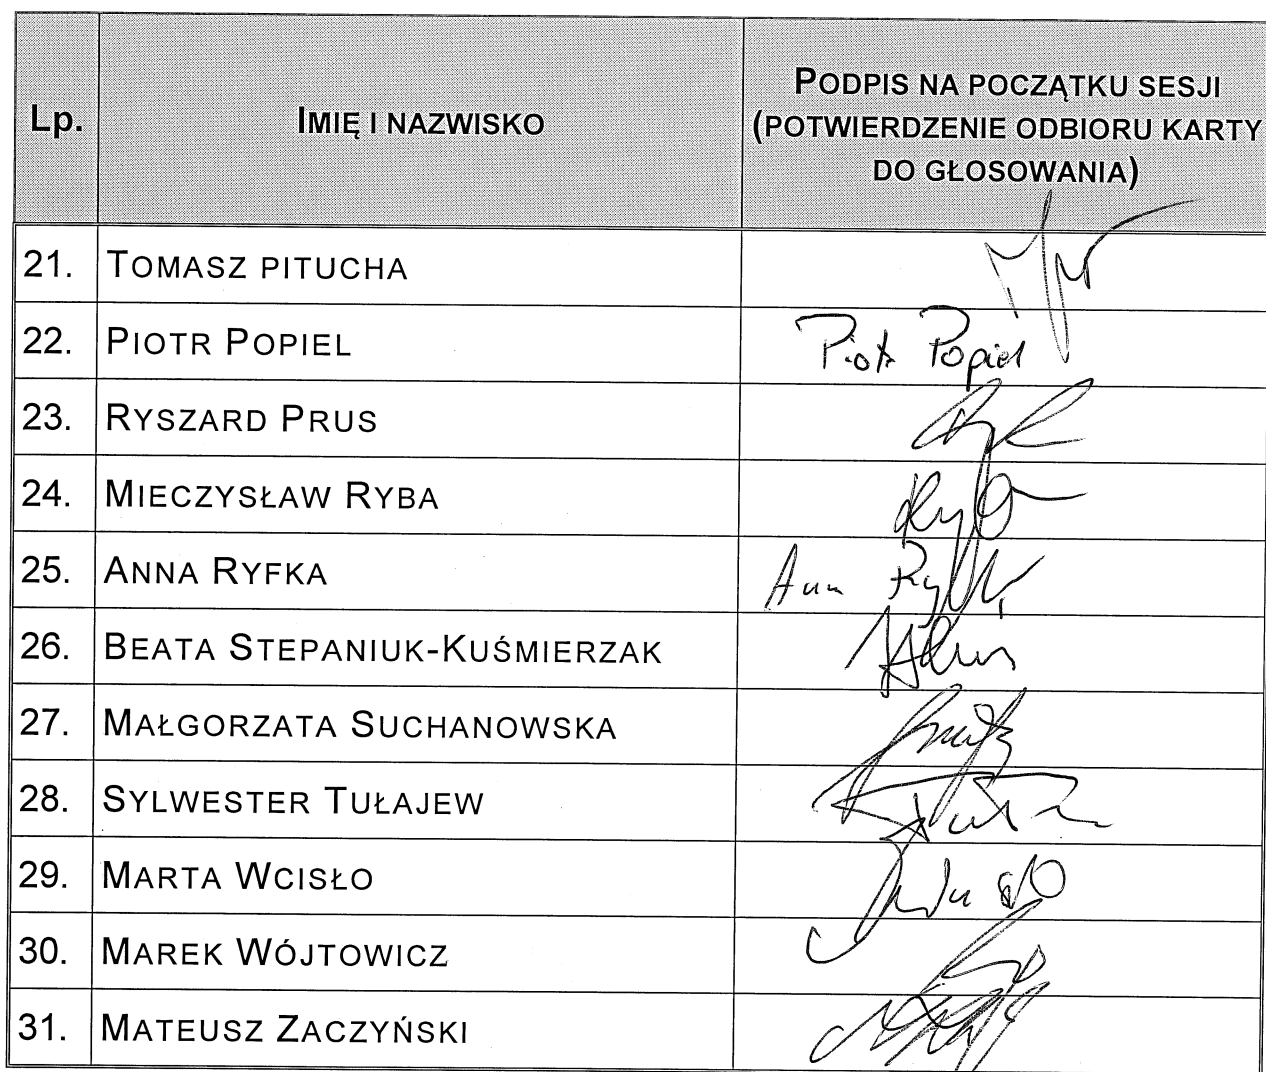 Lp.
IMIĘ I NAZWISKO
PODPIS NA POCZĄTKU SESJI
(POTWIERDZENIE ODBIORU KARTY
DO GŁOSOWANIA)
21. TOMASZ PITUCHA
22. PIOTR POPIEL Piotr Popiel
23. RYSZARD PRUS
24. MIECZYSŁAW RYBA
25. ANNA RYFKA
26. BEATA STEPANIUK-KUŚMIERZAK
27. MAŁGORZATA SUCHANOWSKA
28. SYLWESTER TUŁAJEW
29. MARTA WCISŁO
30. MAREK WÓJTOWICZ
31. MATEUSZ ZACZYŃSKI